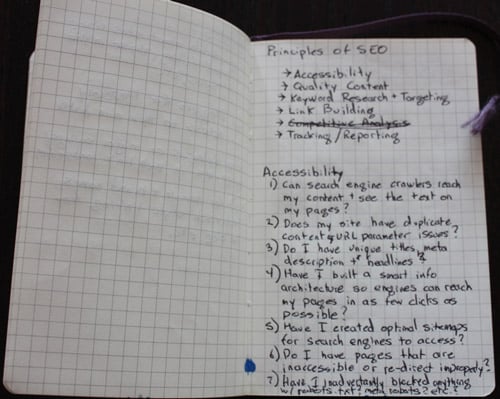 Principles of SEO
→ Accessibility
→ Quality Content
→ Keyword Research + Targeting
→ Link Building
→ Competitive Analysis
→ Tracking / Reporting
Accessibility
1) Can search engine crawlers reach
my content + see the text on
my pages?
2) Does my site have duplicate
content & URL parameter issues?
3) Do I have unique titles, meta
description + headlines?
4) Have I built a smart info
architecture so engines can reach
my pages in as few clicks as
possible?
5) Have I created optimal sitemaps
for search engines to access?
6) Do I have pages that are
inaccessible or re-direct improperly?
7) Have I inadvertantly blocked anything
w/ robots.txt? meta robots? etc.?